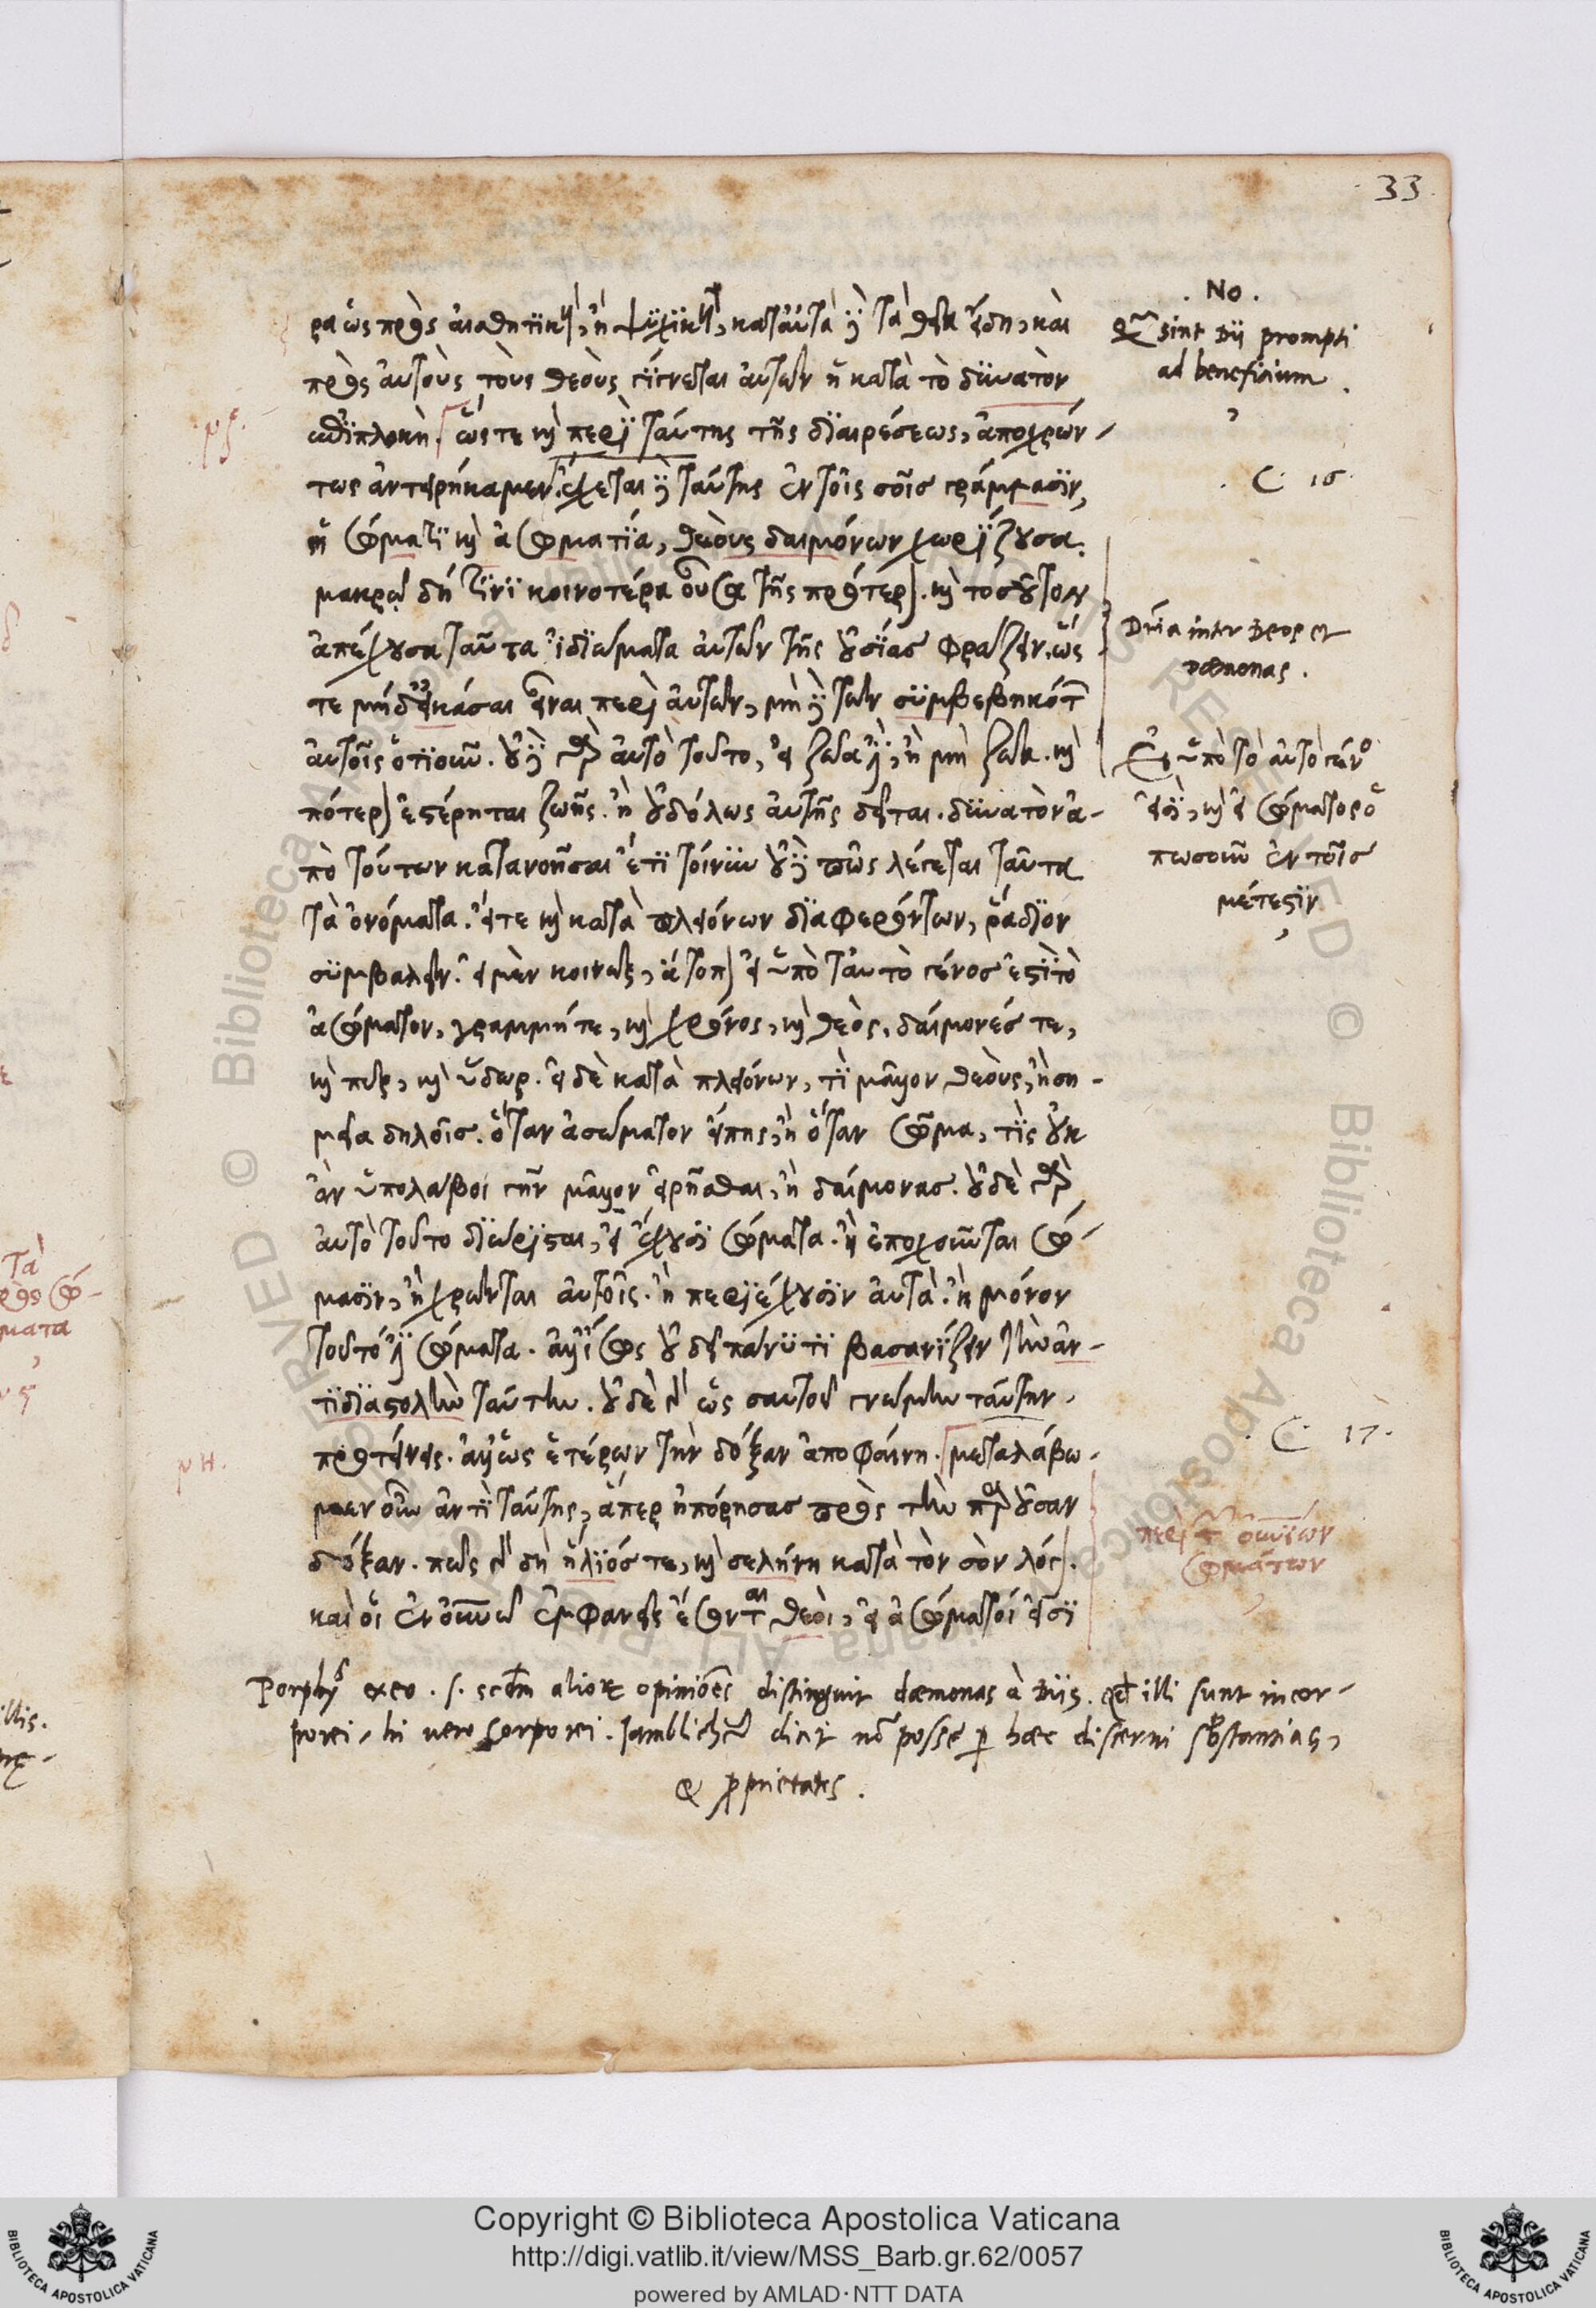 33.
ρα ὡς πρὸς αἰσθητικὴν, ἢ ψυχικὴν, κατὰ ταὐτὰ γὰρ τὰ θεῖα εἴδη, καὶ
πρὸς αὐτοὺς τοὺς θεοὺς γίγνεται αὐτῶν ἡ κατὰ τὸ δυνατὸν
συμπλοκή. ὥστε καὶ περὶ ταύτης τῆς διαιρέσεως, ἀποχρών-
τως ἀντειρήκαμεν. ἔχεται δὲ ταύτης ἐν τοῖς σοῖς γράμμασιν,
ἡ σώματι καὶ ἀσωματία, θεοὺς δαιμόνων χωρίζουσα.
μακρῷ δή τινι κοινοτέρα οὖσα τῆς προτέρας. καὶ τοσοῦτον
ἀπέχουσα ταῦτα ἰδιώματα αὐτῶν τῆς οὐσίας φράζειν. ὥς
τε μηδ' εἰκάσαι εἶναι περὶ αὐτῶν, μηδὲ τῶν συμβεβηκότων
αὐτοῖς ὁτιοῦν. οὐδὲ γὰρ αὐτὸ τοῦτο, εἰ ζῶά ἐστιν, ἢ μὴ ζῶα. καὶ
πότερον ἐστέρηται ζωῆς. ἢ οὐδ' ὅλως αὐτῆς δεῖται. δυνατὸν ἀ-
πὸ τούτων κατανοῆσαι ἔτι τοίνυν οὐδὲ πῶς λέγεται ταῦτα
τὰ ὀνόματα. εἴτε καὶ κατὰ πλειόνων διαφερόντων, ῥᾴδιον
συμβαλεῖν. εἰ μὲν κοινῶς, ἄτοπον εἰ ὑπὸ ταυτὸ γένος ἐστὶ τὸ
ἀσώματον, γραμμή τε, καὶ χρόνος, καὶ θεὸς, δαίμονές τε,
καὶ πῦρ, καὶ ὕδωρ. εἰ δὲ κατὰ πλειόνων, τί μᾶλλον θεοὺς, ἢ ση-
μεῖα δηλοῖς. ὅταν ἀσώματον εἴπῃς, ἢ ὅταν σῶμα, τίς οὐκ
ἂν ὑπολάβοι γῆν μᾶλλον εἰρῆσθαι, ἢ δαίμονας. οὐδὲ γὰρ
αὐτὸ τοῦτο διώρισται, εἰ ἔχουσι σώματα. ἢ ἐποχοῦνται σώ-
μασιν, ἢ χρῶνται αὐτοῖς. ἢ περιέχουσιν αὐτά. ἢ μόνον
τοῦτό ἐστι σώματα. ἀλλ' ἴσως οὐ δεῖ πάνυ τι βασανίζειν τὴν ἀν-
τιδιαστολὴν ταύτην. οὐδὲ γὰρ ὡς σαυτοῦ γνώμην ταύτην
προτείνεις. ἀλλ' ὡς ἑτέρων τὴν δόξαν ἀποφαίνῃ. μεταλάβω-
μεν οὖν ἀντὶ ταύτης, ἅπερ ἠπόρησας πρὸς τὴν παροῦσαν
δόξαν. πῶς γὰρ δὴ ἥλιός τε, καὶ σελήνη κατὰ τὸν σὸν λόγον.
καὶ οἱ ἐν οὐρανῷ ἐμφανεῖς ἔσονται θεοὶ, εἰ ἀσώματοί εἰσι
. No .
Qm sint Dii prompti
ad beneficium .
C. 16.
Dria inter Deos et
dæmonas .
Εἰ ὑπὸ τὸ αὐτὸ γένος
εἰσὶ, καὶ εἰ σώματος ὁ
πωσοῦν ἐν τοῖς
μέτεστιν
C. 17.
περὶ τῶν οὐρανίων
σωμάτων
νζ.
νη.
Porphyrs exeo . s. scdm alior opiniões distinguit dæmonas à Diis. qd illi sunt incor-
porei, hi uero corporei. Iamblichus dicit nõ posse p hæc discerni sbstantias,
& pprietates .
τὰ
πρὸς σώ-
ματα
illis.
Copyright © Biblioteca Apostolica Vaticana
http://digi.vatlib.it/view/MSS_Barb.gr.62/0057
powered by AMLAD · NTT DATA
BIBLIOTECA APOSTOLICA VATICANA
BIBLIOTECA APOSTOLICA VATICANA